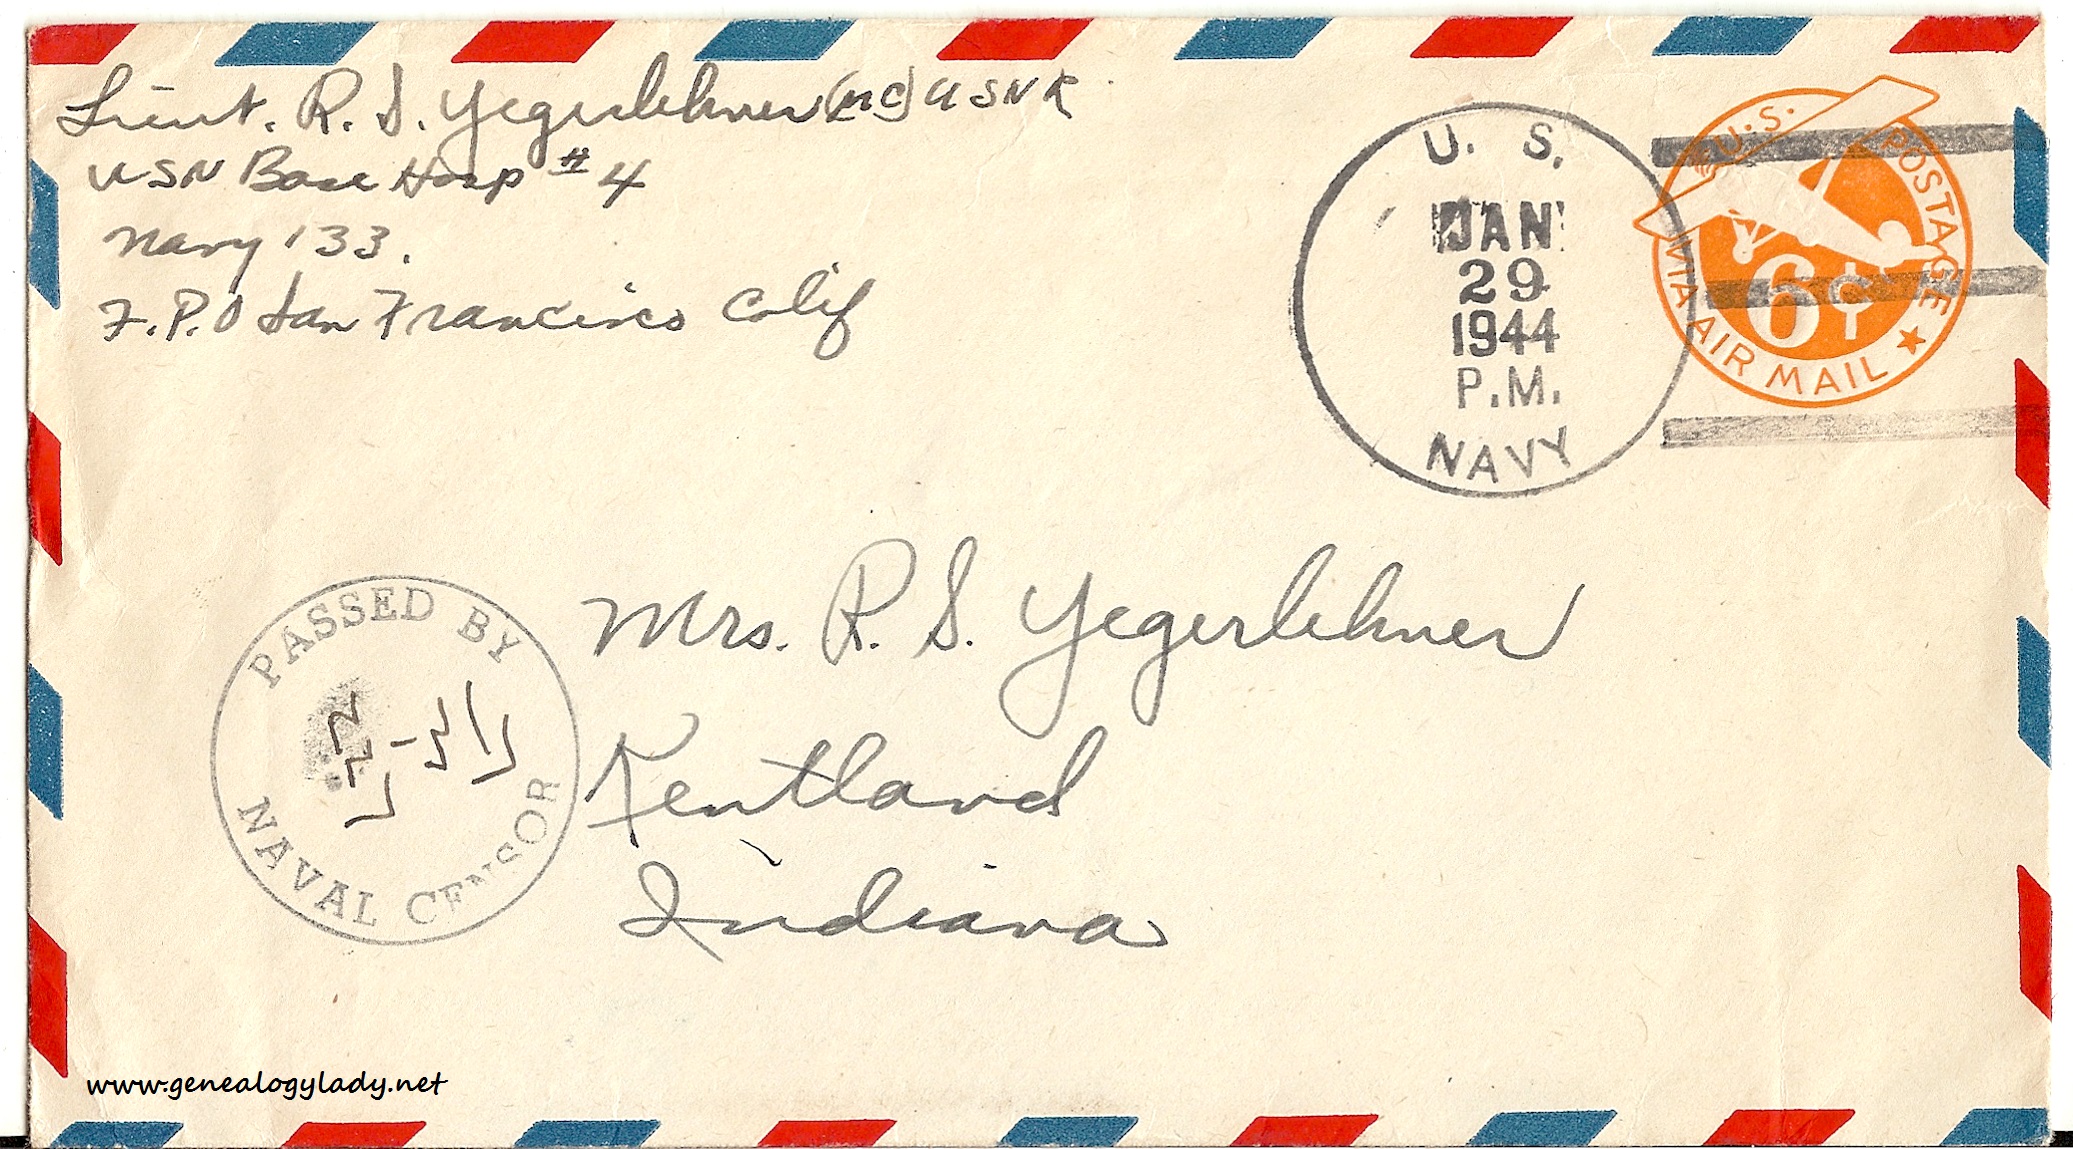 Lieut. R. S. Yegerlehner (MC) USNR
USN Base Hosp # 4
Navy 133.
F.P.O San Francisco Calif
U. S.
JAN
29
1944
P.M.
NAVY
U.S. POSTAGE
6¢
VIA AIR MAIL
PASSED BY
NAVAL CENSOR
Mrs. R. S. Yegerlehner
Kentland
Indiana
www.genealogylady.net